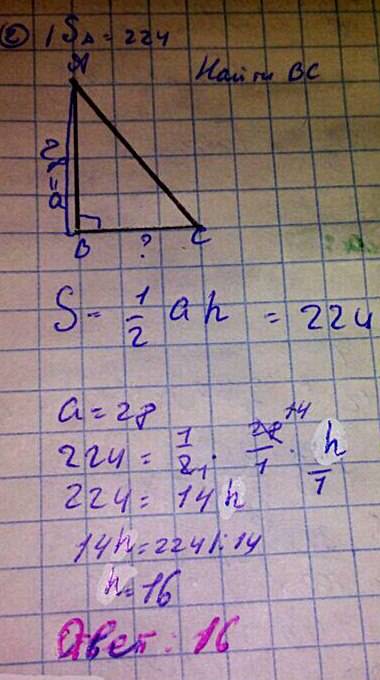 ② 1 S△ = 224
A
Найти BC
a = 28
B
?
C
S = 1/2 a h = 224
a = 28
224 = 1/2 1 · 28 14/1 · h/1
224 = 14h
14h = 224 | : 14
h = 16
Ответ: 16